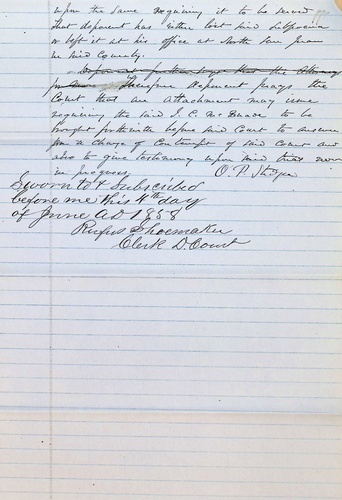 upon the same requiring it to be served
that deponent has either lost said Subpoena
or left it at his office at North San Juan
in said County.
Deponent further says that the Attorney
Therefore Deponent prays the
Court that an attachment may issue
requiring the said J. C. McQuade to be
brought forthwith before said Court to answer
for a charge of Contempt of said Court and
also to give testimony upon said trial now
in progress O. P. Stidger
Sworn to & Subscribed
before me this 4th day
of June AD 1858
Rufus Shoemaker
Clerk D. Court